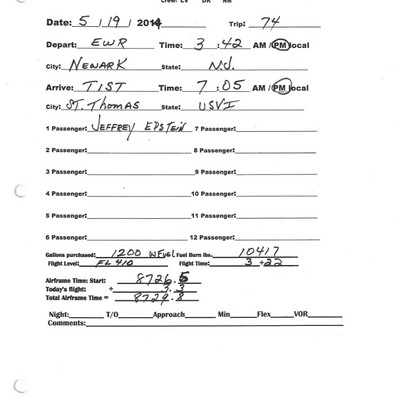 Crew: EV DR NM
Date: 5 / 19 / 2014 Trip: 74
Depart: EWR Time: 3 : 42 AM / PM local
City: NEWARK State: N.J.
Arrive: TIST Time: 7 : 05 AM / PM local
City: ST. THOMAS State: USVI
1 Passenger: JEFFREY EPSTEIN 7 Passenger:
2 Passenger: 8 Passenger:
3 Passenger: 9 Passenger:
4 Passenger: 10 Passenger:
5 Passenger: 11 Passenger:
6 Passenger: 12 Passenger:
Gallons purchased: 1200 WFUEL Fuel Burn lbs. 10417
Flight Level: FL 410 Flight Time: 3 +22
Airframe Time: Start: 8726.5
Today's flight: + 3.3
Total Airframe Time = 8729.8
Night: T/O Approach Min Flex VOR
Comments: